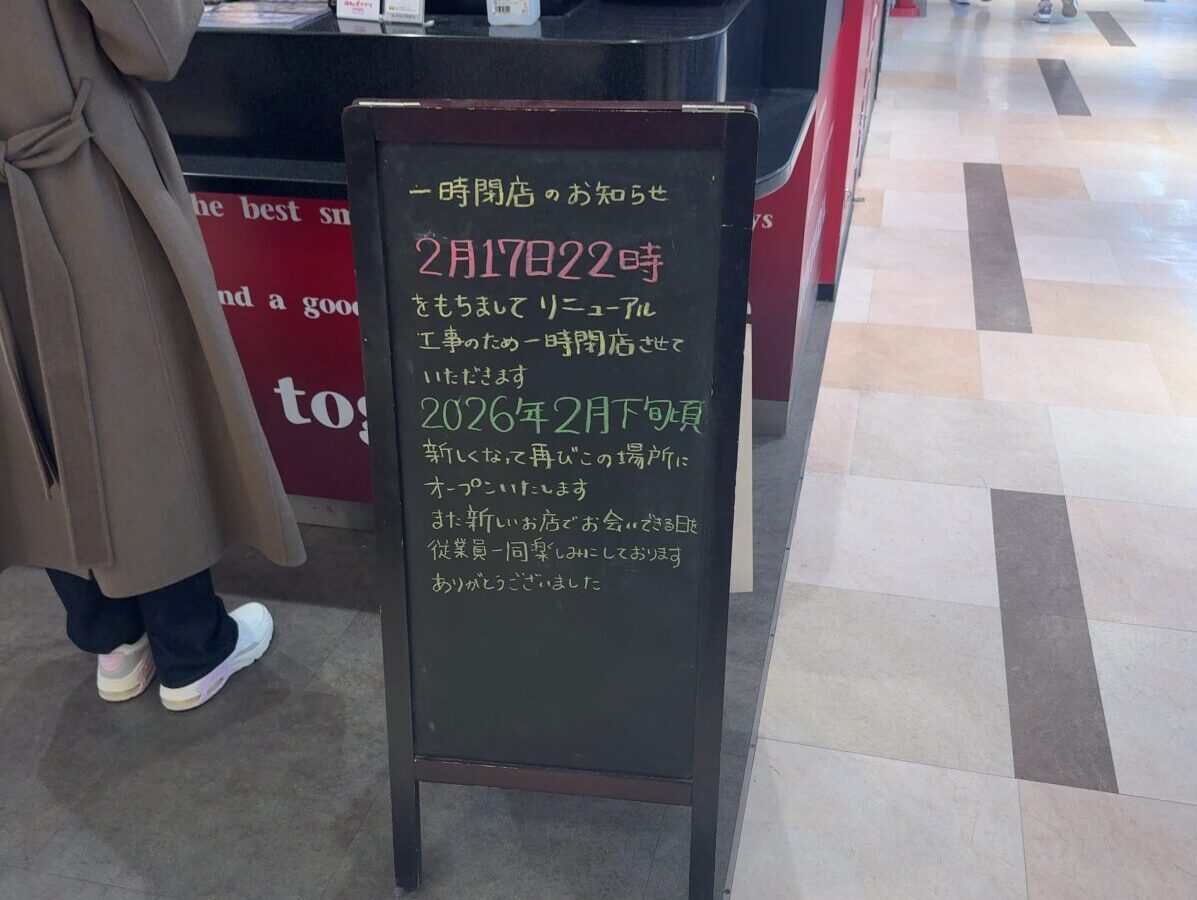 一時閉店のお知らせ
2月17日22時
をもちまして リニューアル
工事のため一時閉店させて
いただきます
2026年2月下旬頃
新しくなって再びこの場所に
オープンいたします
また新しいお店でお会いできる日を
従業員一同楽しみにしております
ありがとうございました
he best sm
nd a good
tog
ys